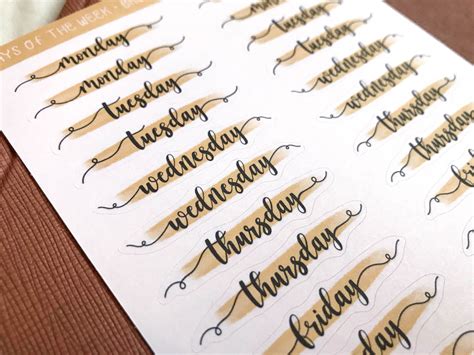 DAYS OF THE WEEK
monday
monday
tuesday
tuesday
wednesday
wednesday
thursday
thursday
friday
tuesday
tuesday
wednesday
wednesday
thursday
thursday
friday